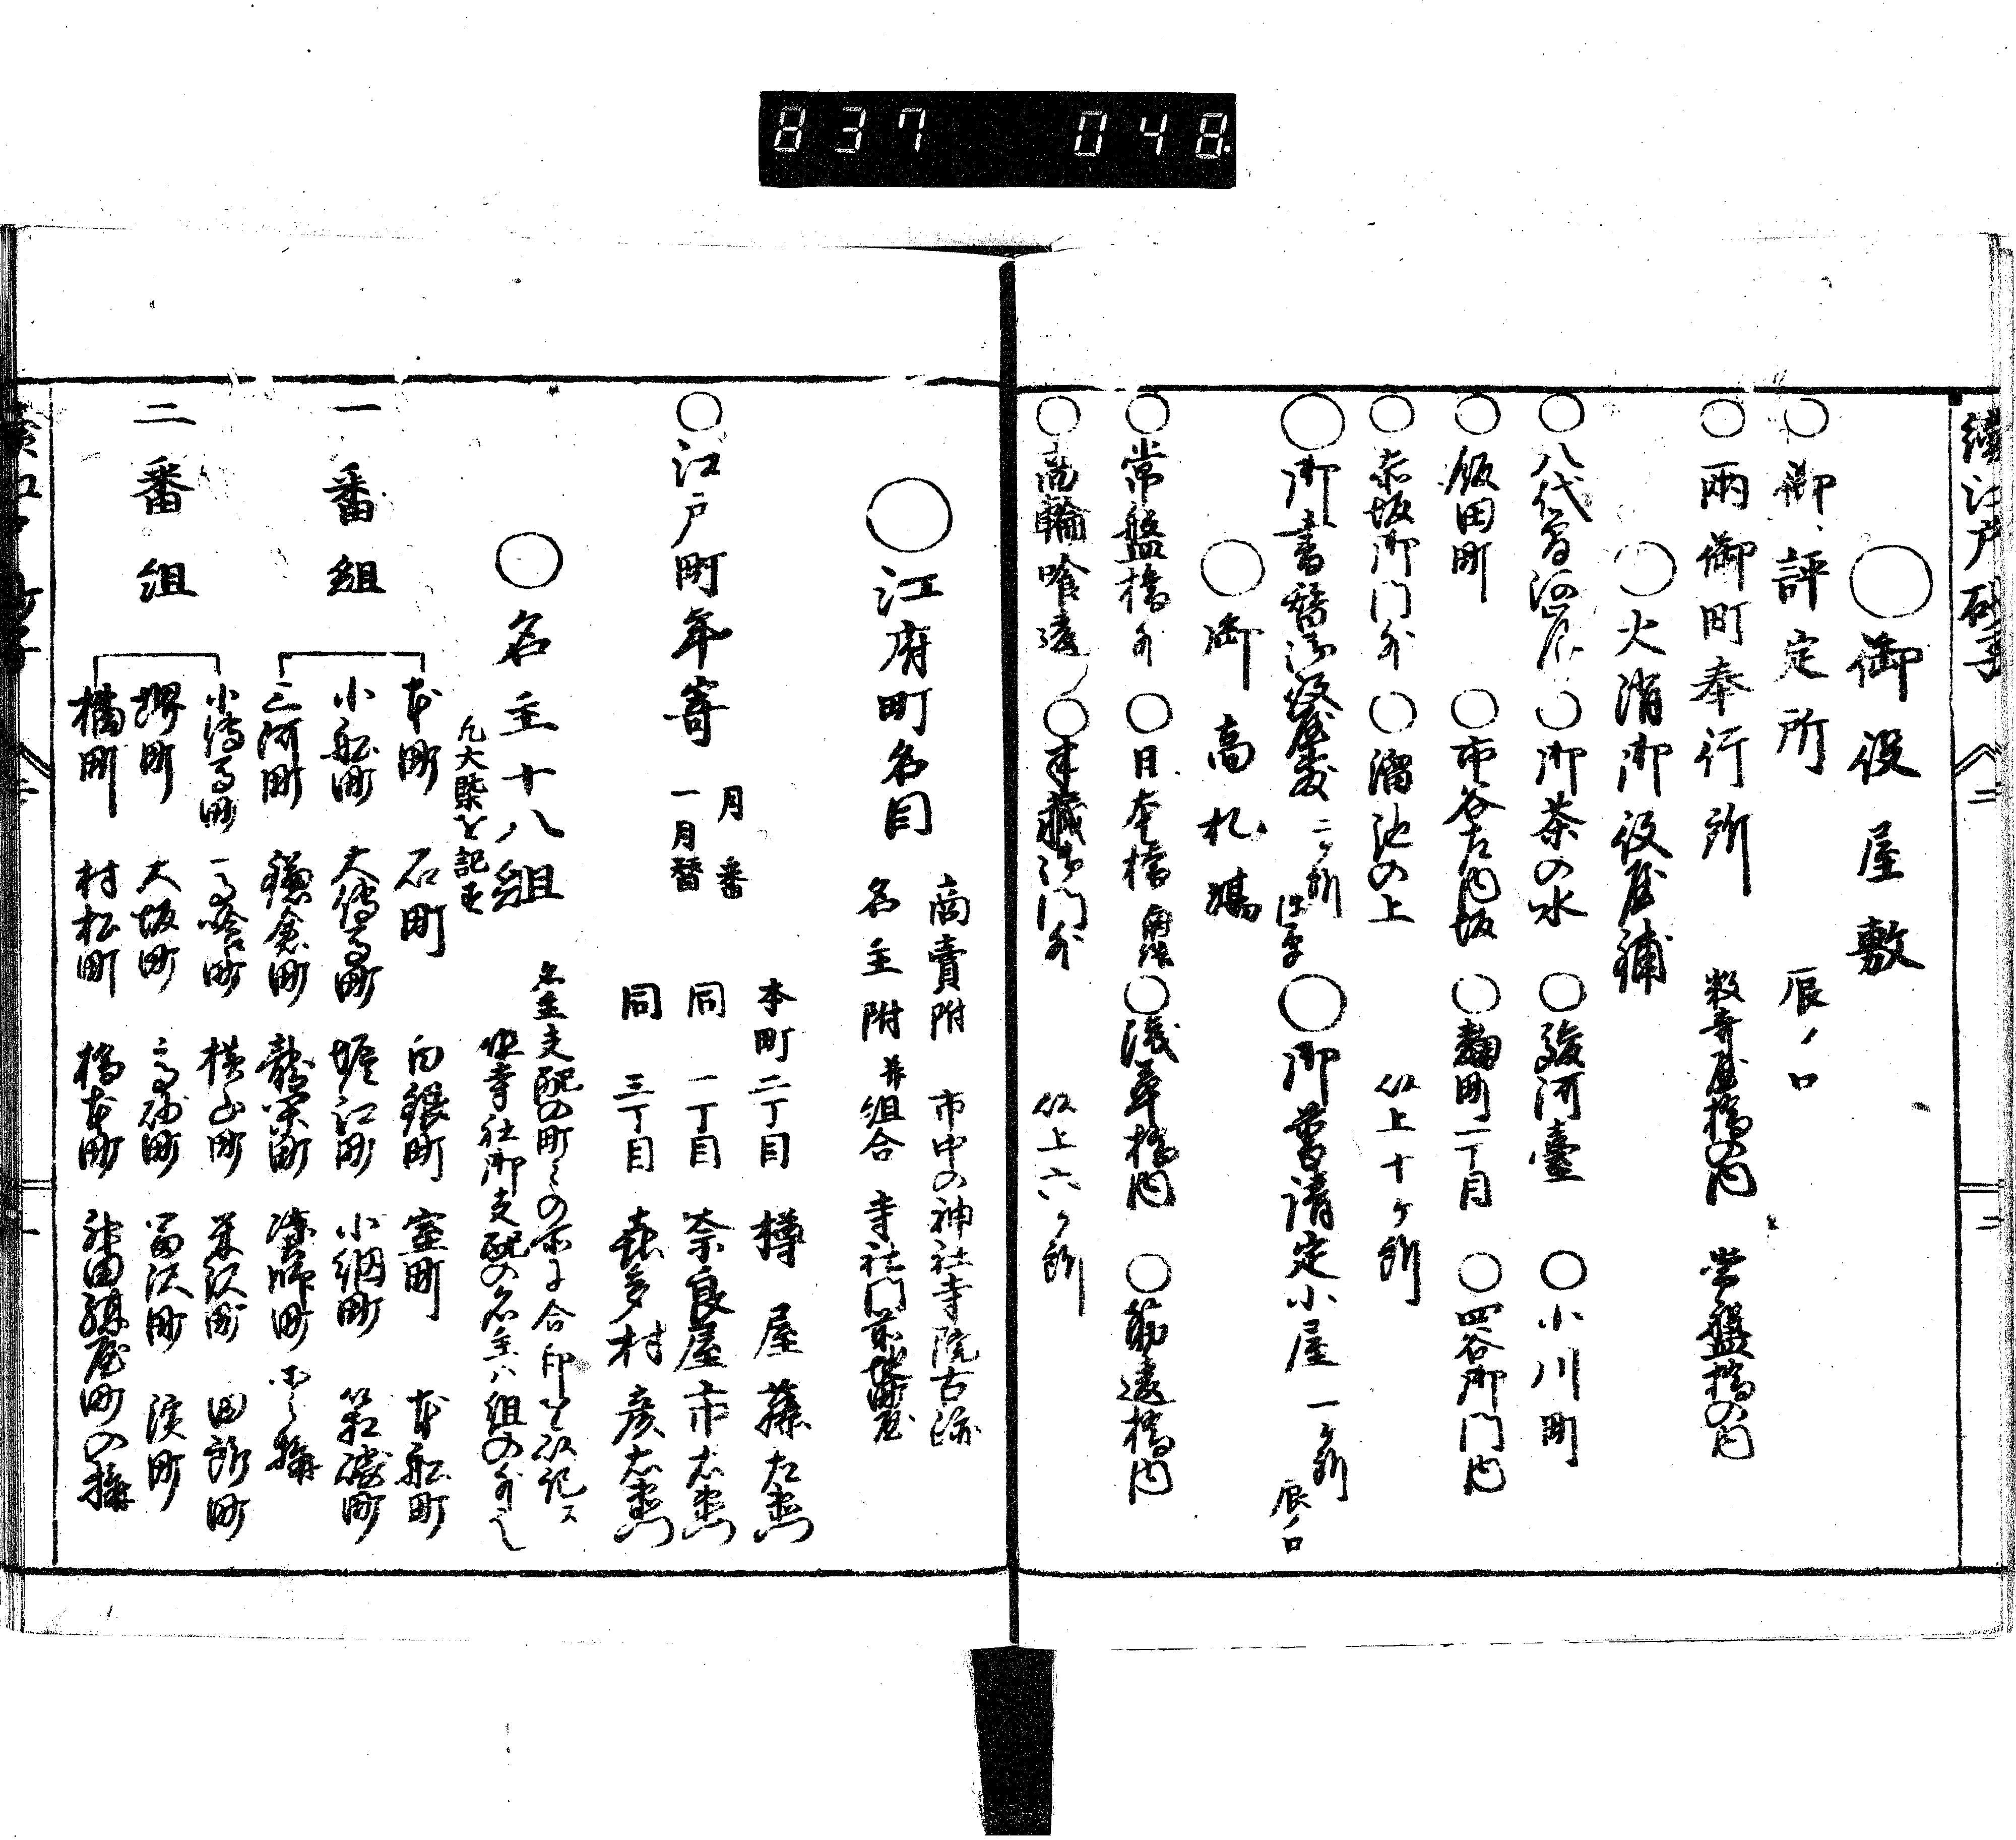 837 048
續江戸砂子
○御役屋敷
○御評定所 辰ノ口
○両御町奉行所 数寄屋橋の内 常盤橋の内
○火消御役屋舗
○八代曽河岸 ○御茶の水 ○駿河臺 ○小川町
○飯田町 ○市谷左内坂 ○麹町一丁目 ○四谷御門内
○赤坂御門外 ○溜池の上 以上十ヶ所
○御書替御役屋敷 二ヶ所 ○御普請定小屋 一ヶ所 辰ノ口
○御高札場
○常盤橋外 ○日本橋 南詰 ○浅草橋内 ○筋違橋内
○高輪喰違 ○半蔵御門外 以上六ヶ所
○江府町名目 商賣附 市中の神社寺院古跡
名主附 并組合 寺社門前町屋
○江戸町年寄 月番 一月替
本町二丁目 樽屋藤左衛門
同 一丁目 奈良屋市右衛門
同 三丁目 喜多村彦右衛門
○名主十八組 名主支配の町々の所に合印を以記ス
但寺社御支配の名主ハ組の外也
凡大槩を記す
一番組
本町 石町 白銀町 室町 本船町
小船町 大傳馬町 堀江町 小網町 箱崎町
三河町 鎌倉町 龍閑町 塗師町
二番組
小傳馬町 馬喰町 横山町 米沢町 田所町
堺町 大坂町 高砂町 富沢町 濱町
橘町 村松町 橋本町 神田紺屋町の内